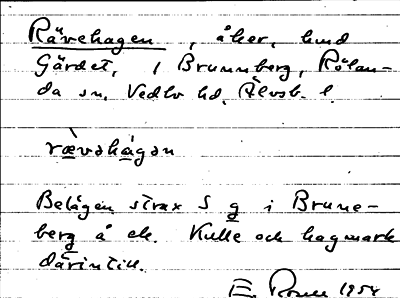 Rävehagen, åker, hund
Gärdet, i Brunnberg, Rölan-
da sn, Vedbo hd, Älvsb. l.
rævəhagən
Belägen strax S g i Brunne-
berg å ek. Kulle och hagmark
därintill.
E 1954